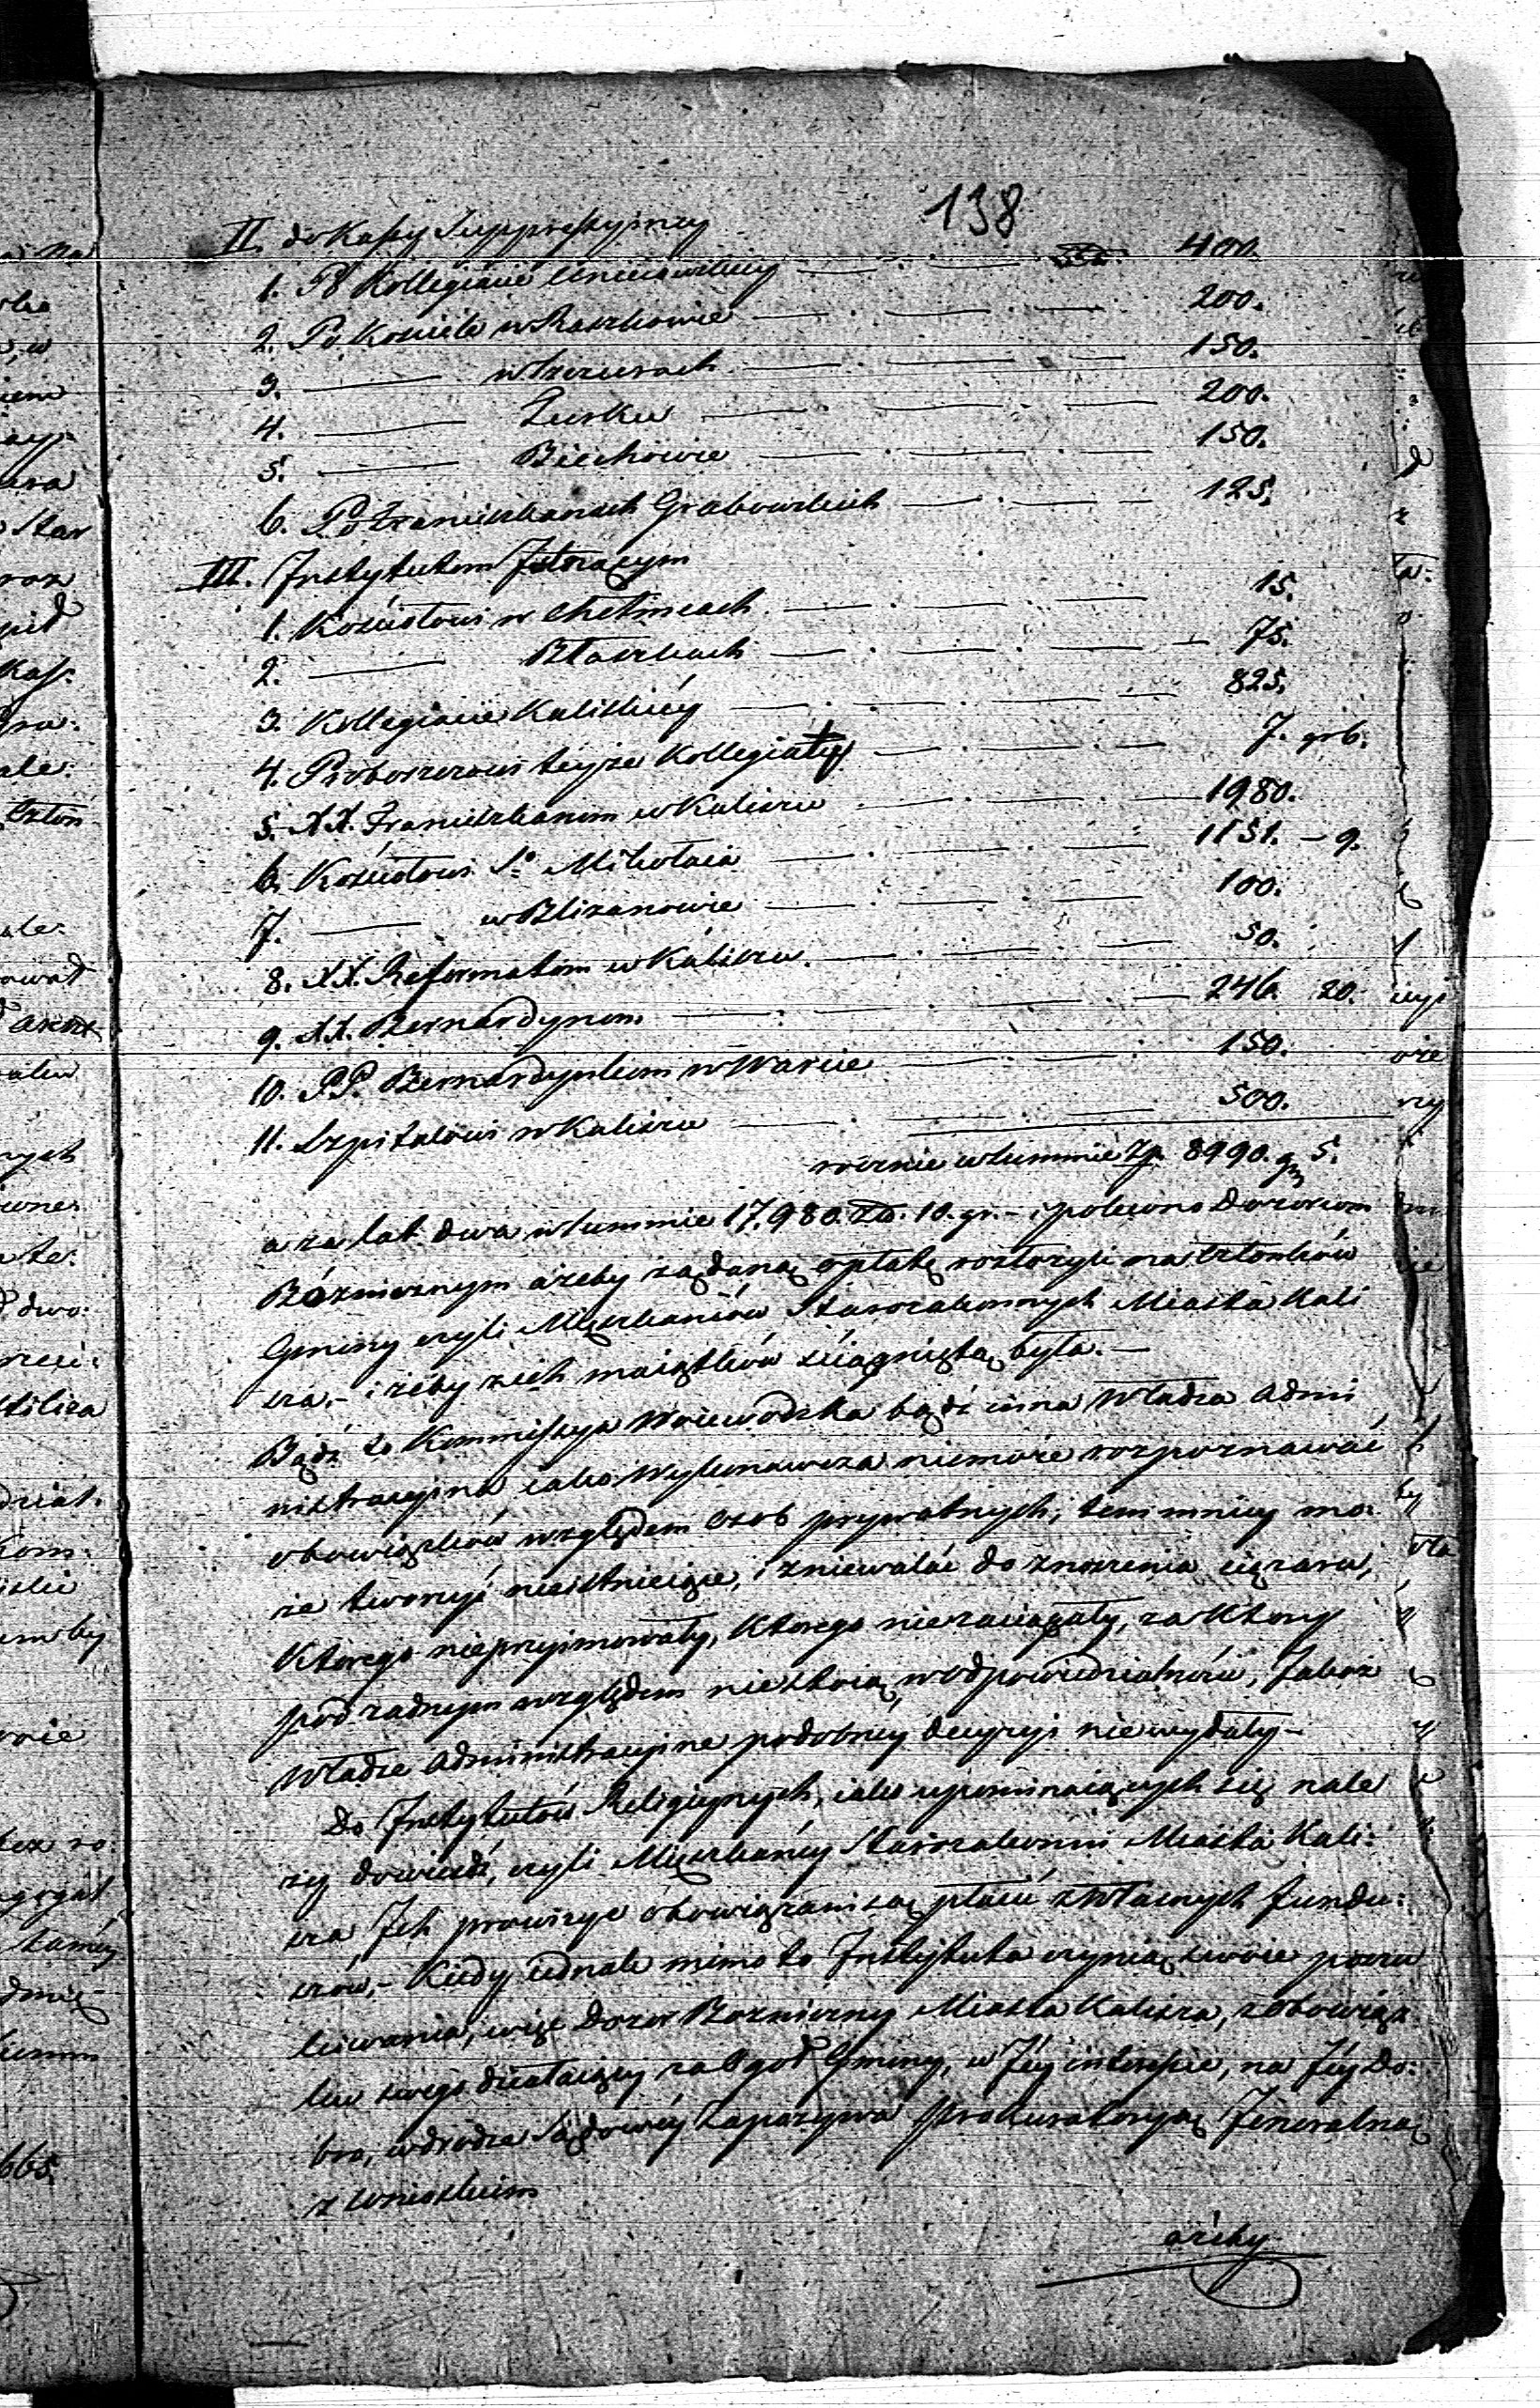 138
II. do Kassy Suppressyiney
1. Po Kollegiacie Uniejowskiey — Zło. 400.
2. Po Kosciele w Raszkowie — 200.
3. — w Iwieruach — 150.
4. — Lusku — 200.
5. — Biechowie — 150.
6. Po Franciszkanach Grabowskich — 125.
III. Instytutom Istnącym
1. Kościołowi w Chełmcach — 15.
2. — Błaszkach — 75.
3. Kollegiacie Kaliskiéy — 825.
4. Proboszczowi teyże Kollegiaty — 7. gr 6.
5. XX. Franciszkanom w Kaliszu — 1980.
6. Kościołowi So Mikołaia — 1151. – 9.
7. — w Blizanowie — 100.
8. XX. Reformatom w Kaliszu — 50.
9. XX. Bernardynom — 246. 20.
10. PP. Bernardynkom w Warcie — 150.
11. Szpitalowi w Kaliszu — 500.
rocznie w summie Zp. 8990. gr 5.
a za lat dwa w summie 17,980. Zło. 10. gr. – i polecono Dozorom
Bóznicznym ażeby żądaną opłatę rozłożyli na Członków
Gminy czyli Mięszkańców Starozakonnych Miasta Kali
sza. – i żeby z ich maiątków ściągniętą była. –
Bądź to Kommissya Woiewodzka bądź inna Władza Admi
nistracyina iako Wykonawcza niemoże rozpoznawać
obowiązków względem Osob prywatnych, tem mniey mo:
że tworzyć nieistnieiące, i zniewalać do znoszenia ciężaru,
Ktorego nieprzyimowały, Ktorego nie zaciągały, za Ktory
pod żadnym względem niestoią w odpowiedzialności, Jakoż
Władze Administracyine podobnéy decyzyi nie wydały –
Do Instytutów Religiynych, iako upominaiących się nale
ży dowieść, czyli Mięszkańcy Starozakonni Miasta Kali:
sza Ich prowizye obowiązani są płacić z własnych fundu:
szów, – Kiedy iednak mimo to Instytuta czynią swoie poszu
kiwania, więc Dozor Bozniczny Miasta Kalisza, z obowiąz
ku swego działaiący za Ogoł Gminy, w Jéy interesie, na Jéy do:
bro, w drodze Sądowéy Zapozywa Prokuratoryą Jeneralną
z wnioskiem
ażeby